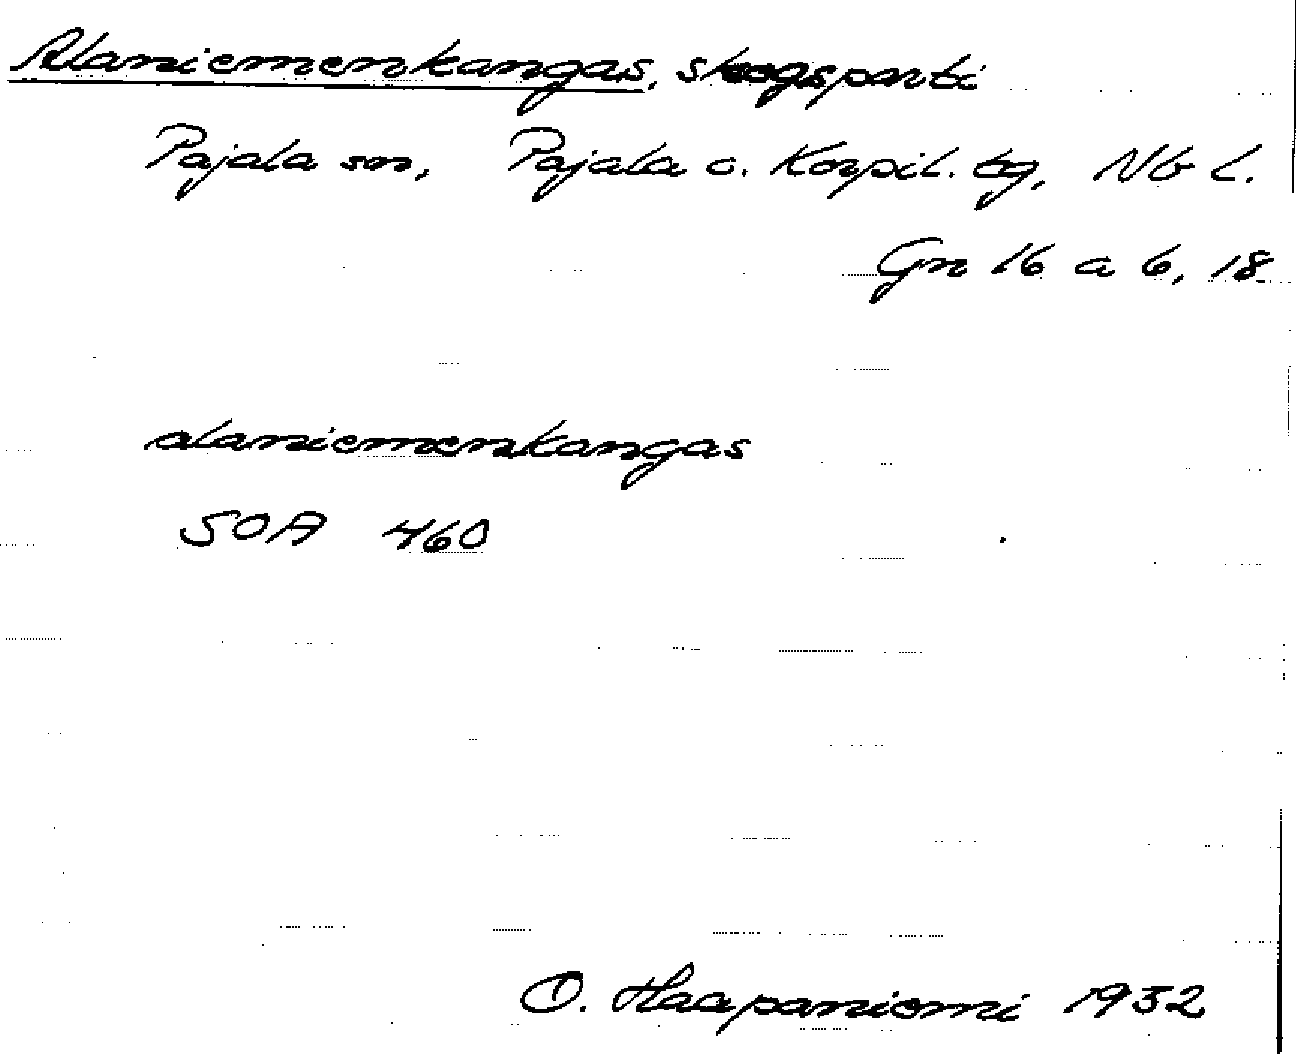 Alaniemenkangas, skogsparti
Pajala sn, Pajala o. Korpil. tg, Nb l.
Gn 16 a 6, 18
alaniemenkangas
SOA 460
O. Haapaniemi 1932